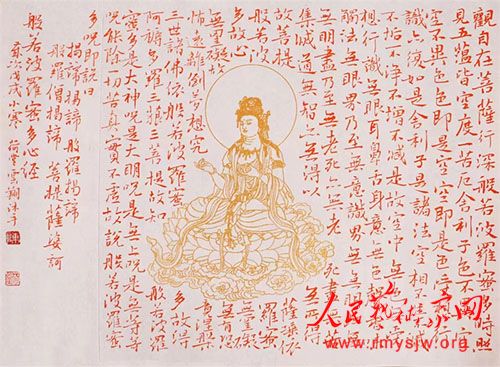 觀自在菩薩行深般若波羅蜜多時照
見五蘊皆空度一切苦厄舍利子色不異空
空不異色色即是空空即是色受想行
識亦復如是舍利子是諸法空相不生不滅
不垢不淨不增不減是故空中無色無受
想行識無眼耳鼻舌身意無色聲香味
觸法無眼界乃至無意識界無無明亦無
無明盡乃至無老死亦無老死盡無苦
集滅道無智亦無得以無所得
故菩提薩埵依
般若波羅蜜
多故心無罣礙
無罣礙故無有恐
怖遠離顛倒夢想究竟涅槃
三世諸佛依般若波羅蜜多故得
阿耨多羅三藐三菩提故知般若波羅
蜜多是大神咒是大明咒是無上咒是無等等
咒能除一切苦真實不虛故說般若波羅蜜
多咒即說曰
揭諦揭諦 般羅揭諦
般羅僧揭諦 菩提薩婆訶
般若波羅蜜多心經
歲次戊戌小寒 荷堂雲翔沐手
人民艺术家网
www.rmysjw.org